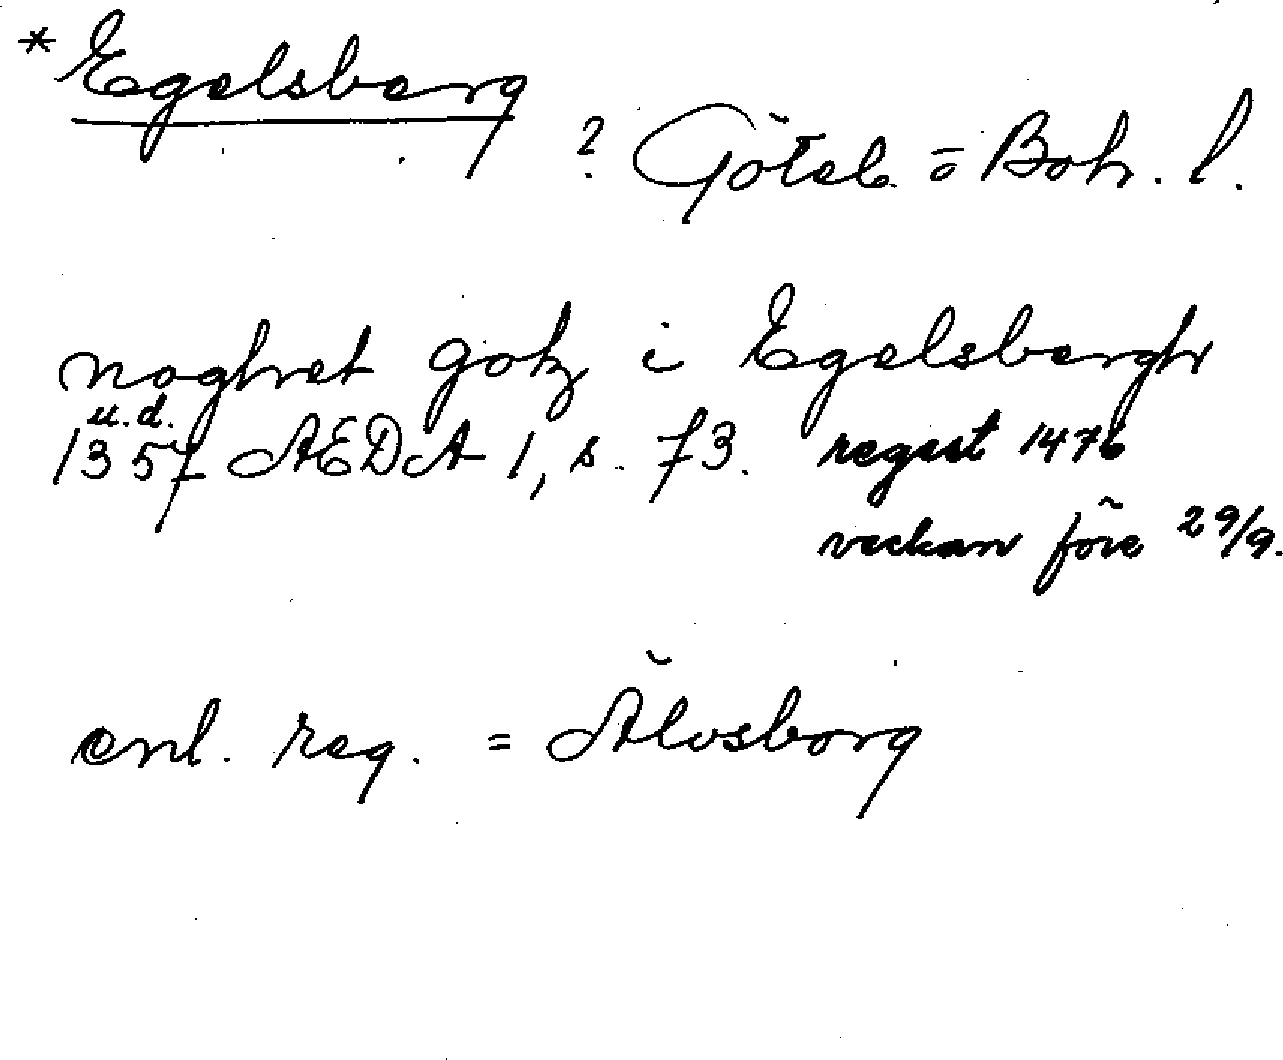 * Egelsberg
? Göteb. o Boh. l.
noghret gotz i Egelsbergh
u.d.
1357 AEDA 1, s. 73. regest 1476
veckan före 29/9.
enl. reg. = Älvsborg